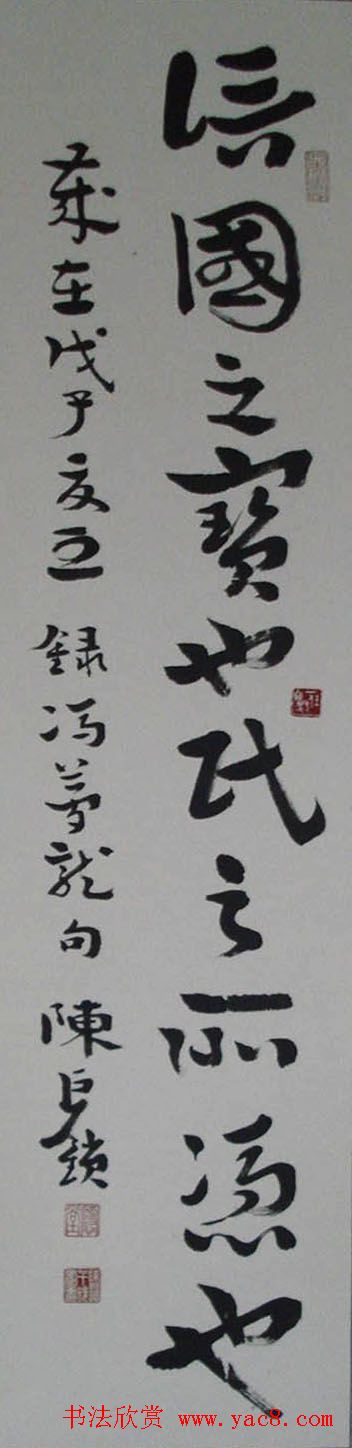 信國之寶也民之所憑也
歲在戊子夏五 録馮夢龍句 陳巨鎖
书法欣赏 www.yac8.com